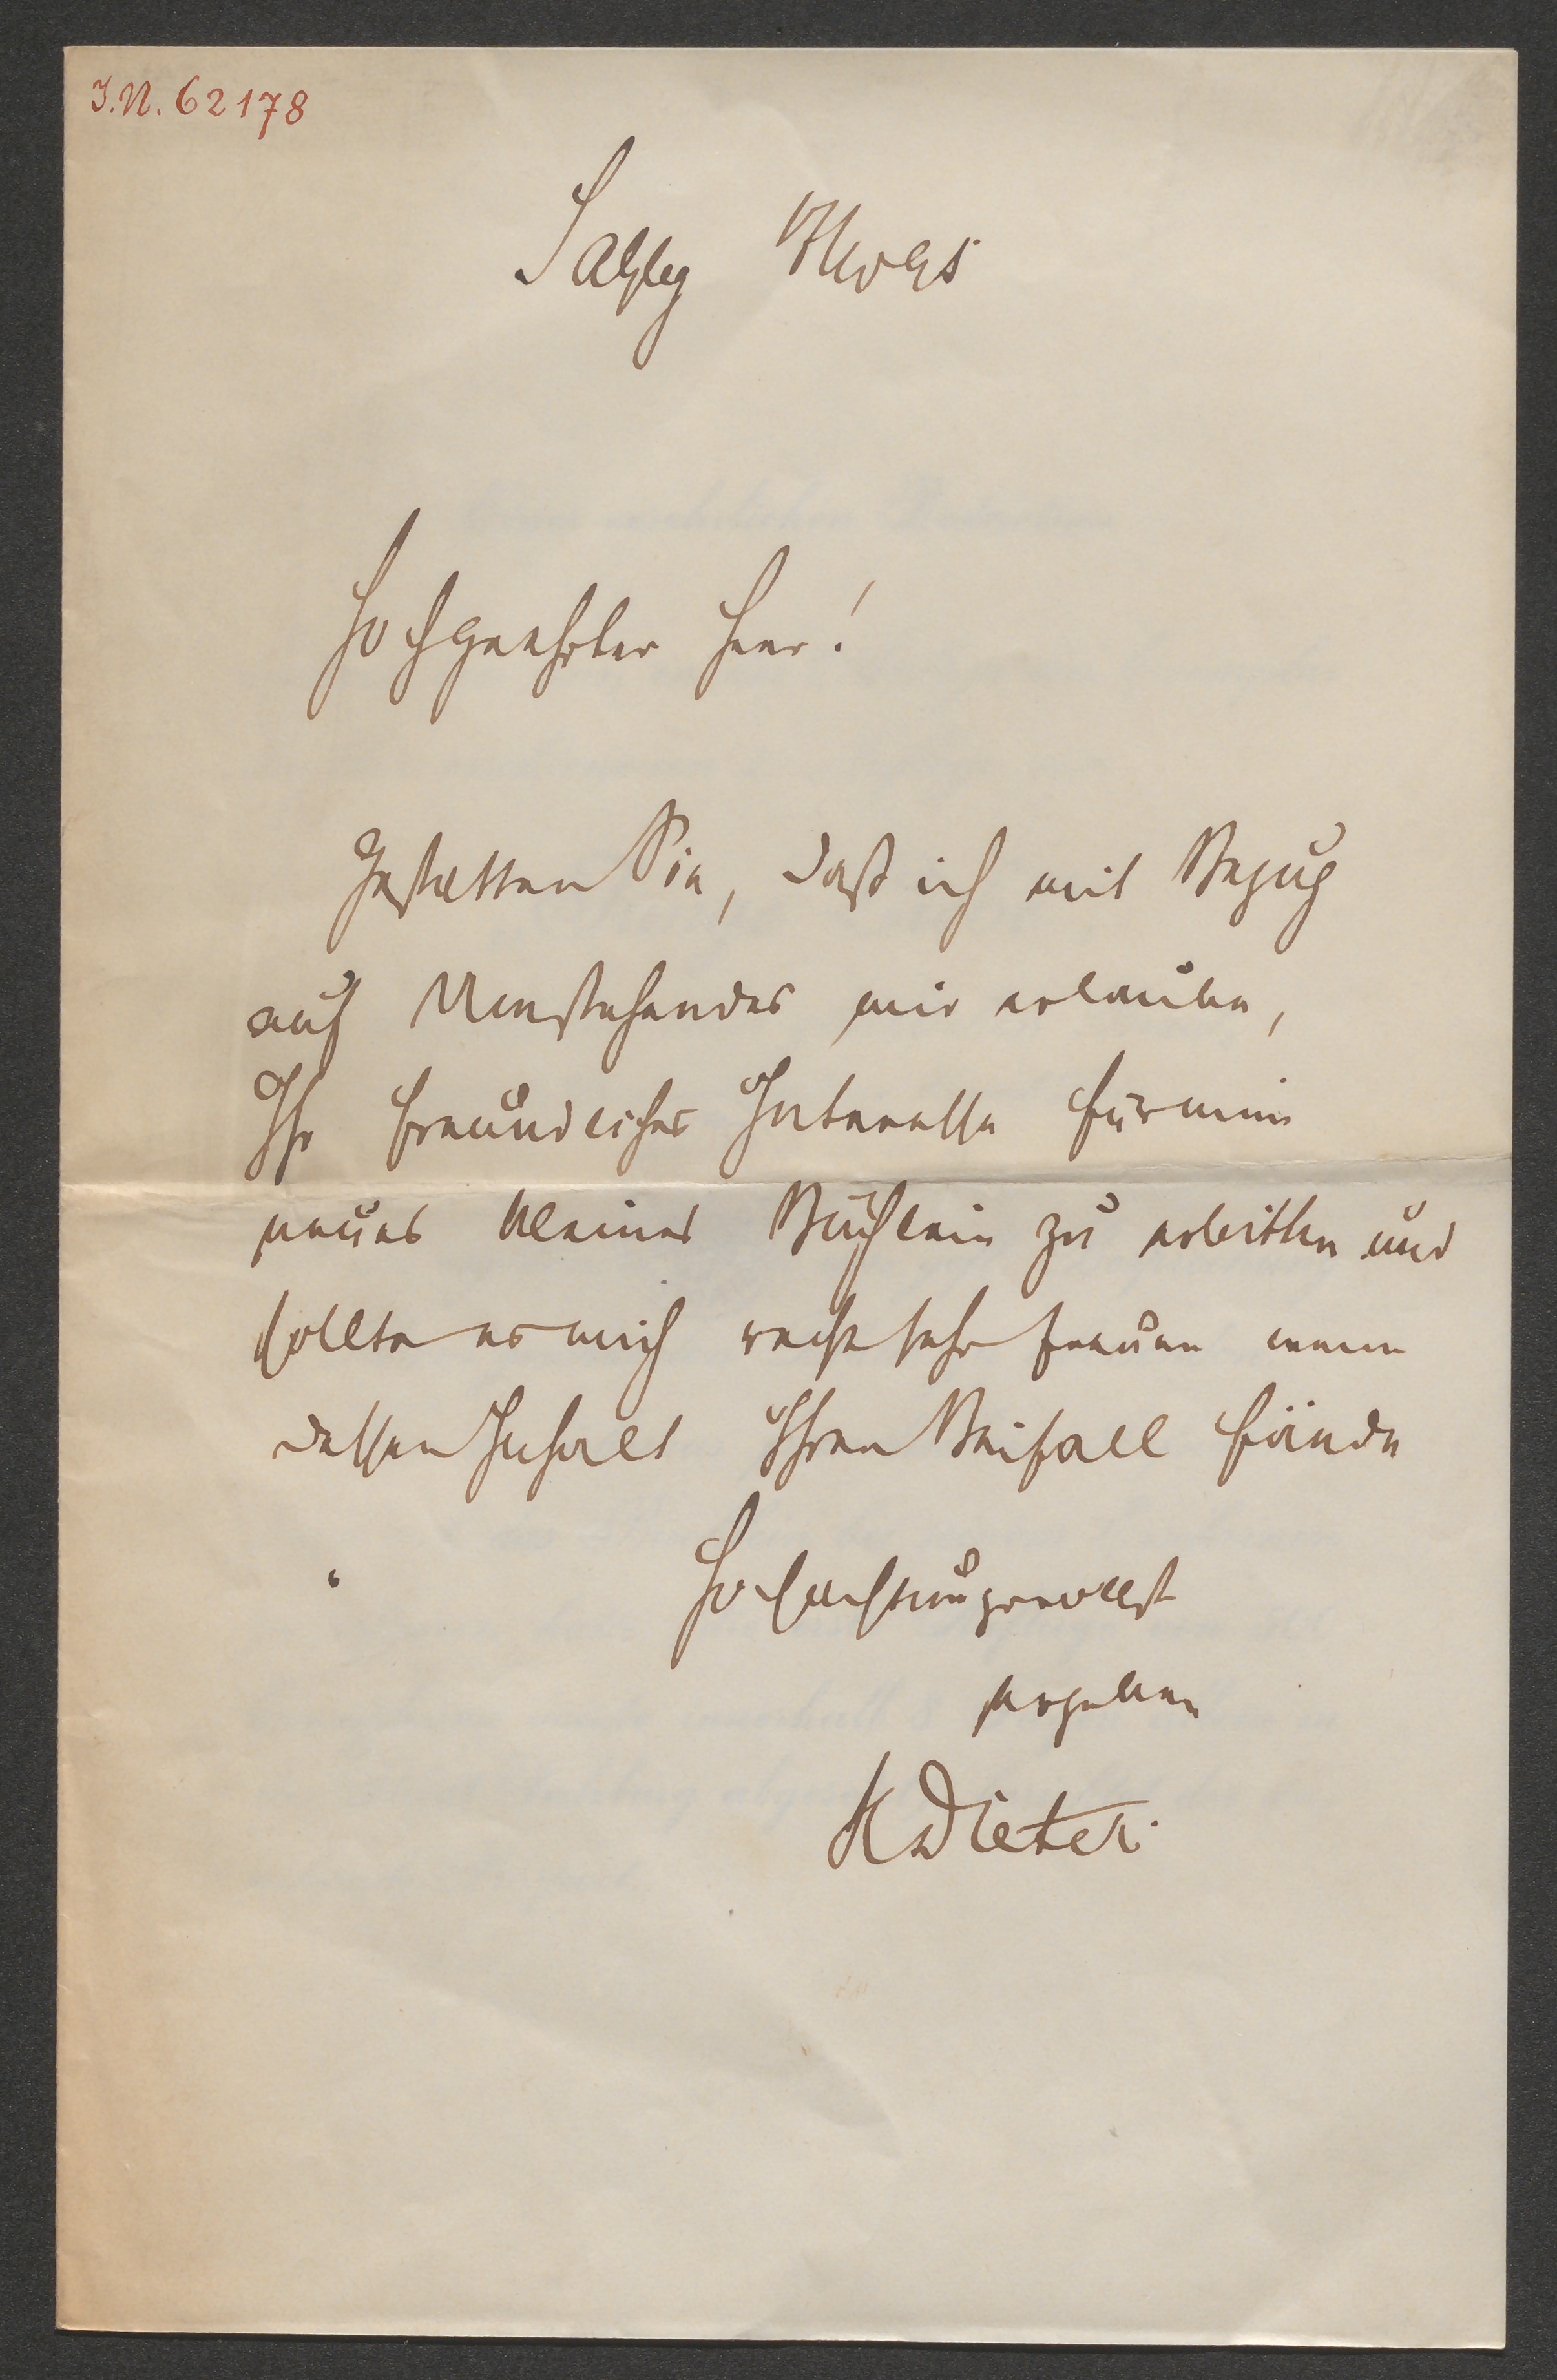 I.N. 62178
Salzbg
Hochgeehrter Herr!
Gestatten Sie, daß ich mit Bezug
auf Umstehendes mir erlaube,
Ihr freundliches Interesse für mein
neues kleines Büchlein zu erbitten und
sollte es mich recht sehr freuen wenn
dessen Inhalt Ihren Beifall fände
Hochachtungsvollst
ergeben
HDieter.